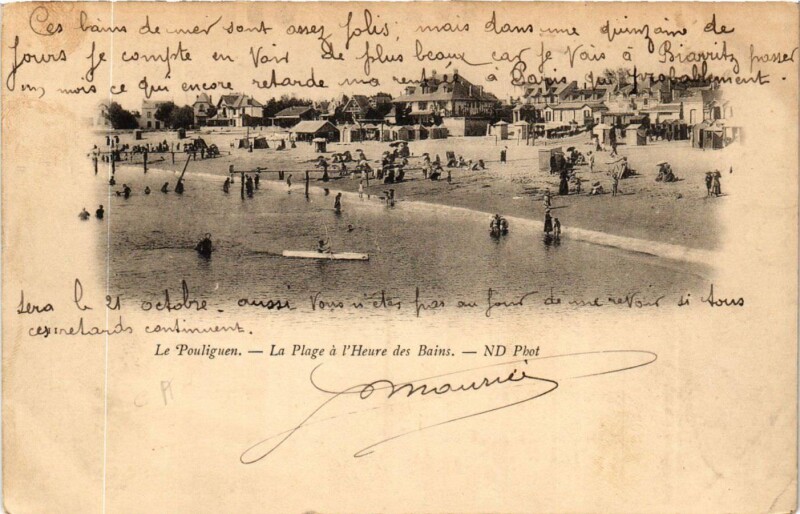 Ces bains de mer sont assez jolis, mais dans une quinzaine de
jours je compte en voir de plus beaux car je vais à Biarritz passer
un mois ce qui encore retarde ma rentrée à Paris qui probablement
sera le 21 octobre. aussi vous n'êtes pas au jour de me revoir si tous
ces retards continuent.
Le Pouliguen. — La Plage à l'Heure des Bains. — ND Phot
Maurice